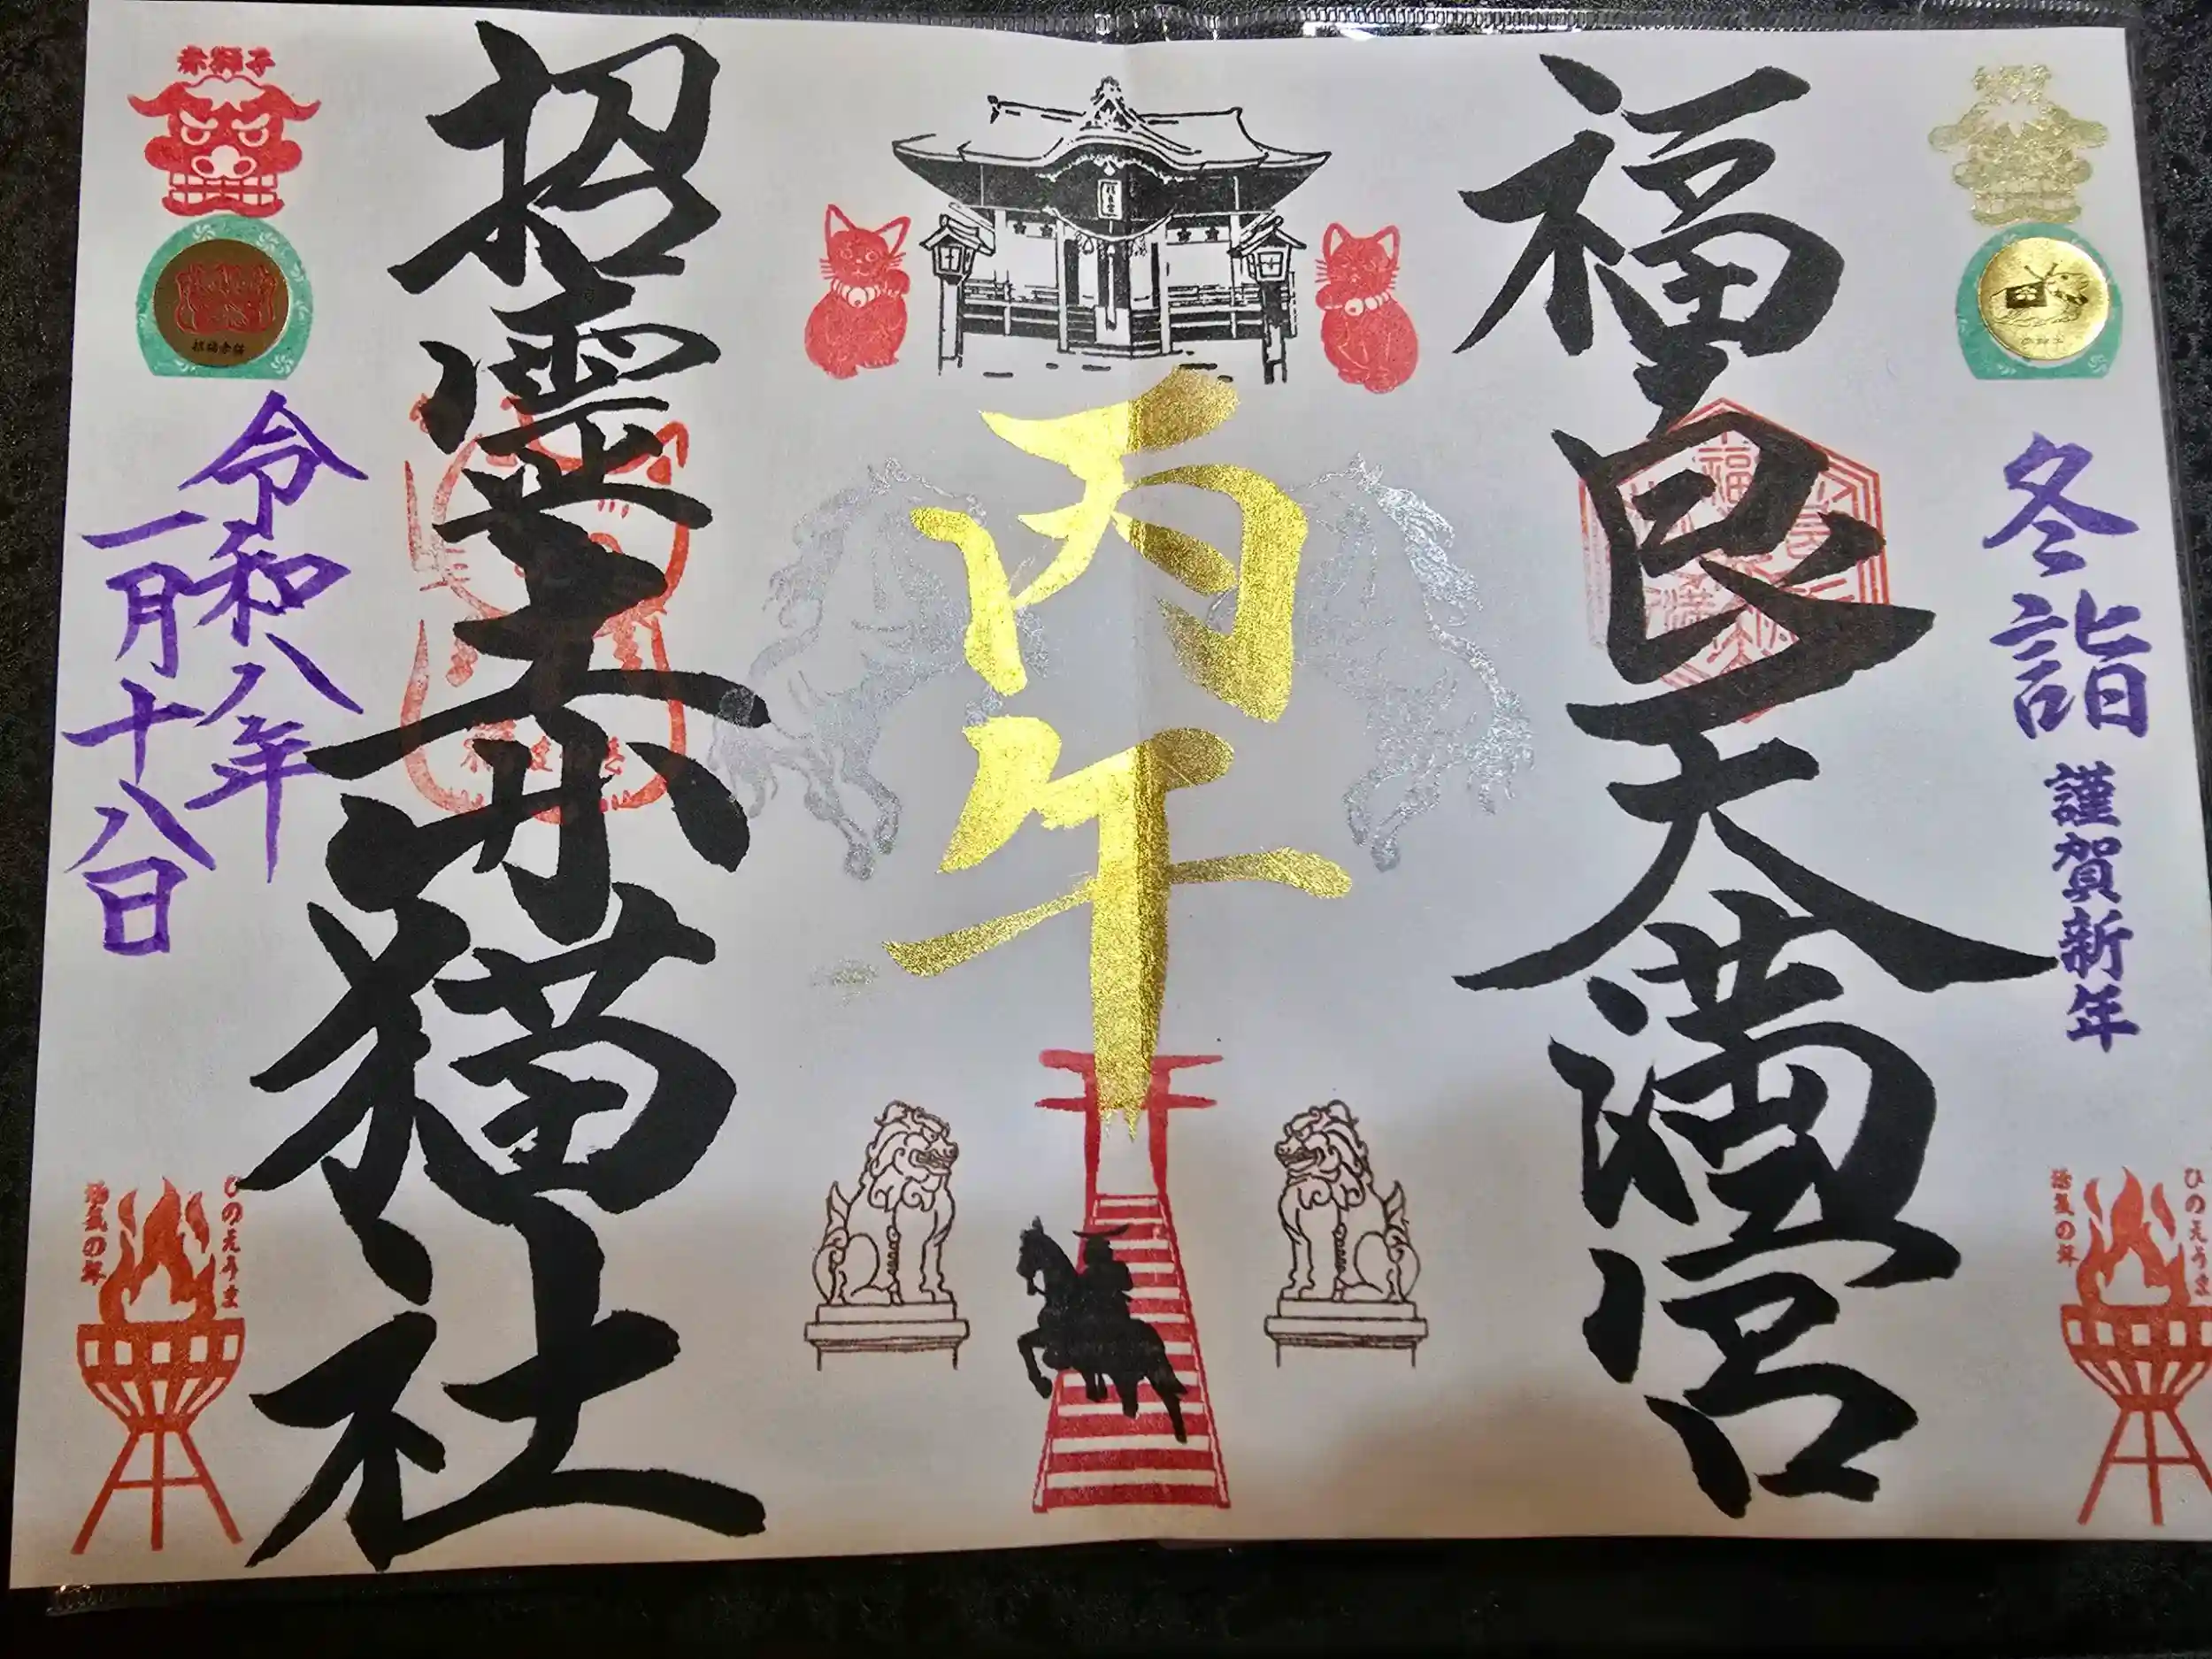 冬詣
謹賀新年
福良天満宮
ひのえうま
活気の年
丙午
赤獅子
招霊赤猫社
令和八年
一月十八日
ひのえうま
活気の年